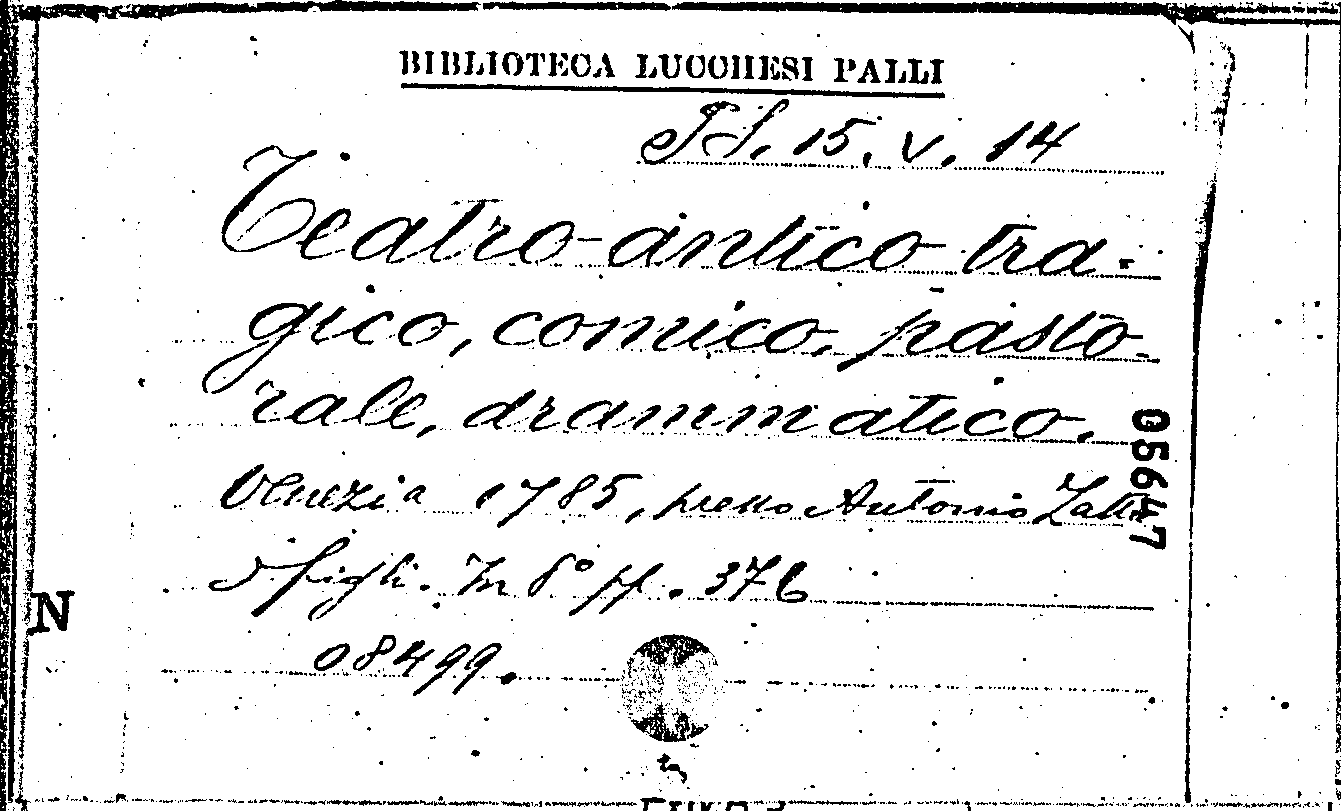 BIBLIOTECA LUCCHESI PALLI
15. V. 14
Teatro antico tra-
gico, comico, pasto-
rale, drammatico.
Venezia 1785, presso Antonio Zatta
figli. In 8° pp. 376
08499.
05647
N